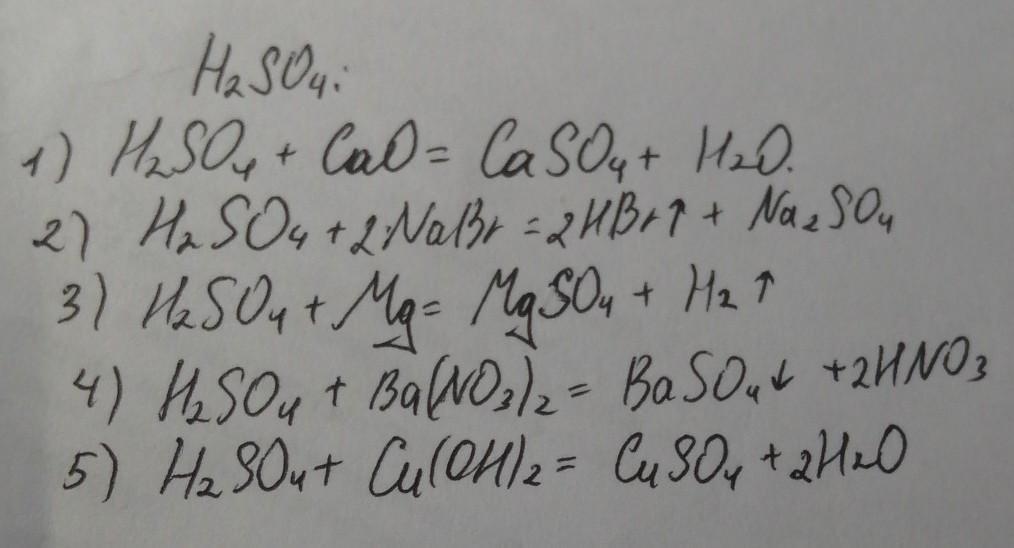 H₂SO₄:
1) H₂SO₄ + CaO = CaSO₄ + H₂O.
2) H₂SO₄ + 2NaBr = 2HBr↑ + Na₂SO₄
3) H₂SO₄ + Mg = MgSO₄ + H₂↑
4) H₂SO₄ + Ba(NO₃)₂ = BaSO₄↓ + 2HNO₃
5) H₂SO₄ + Cu(OH)₂ = CuSO₄ + 2H₂O